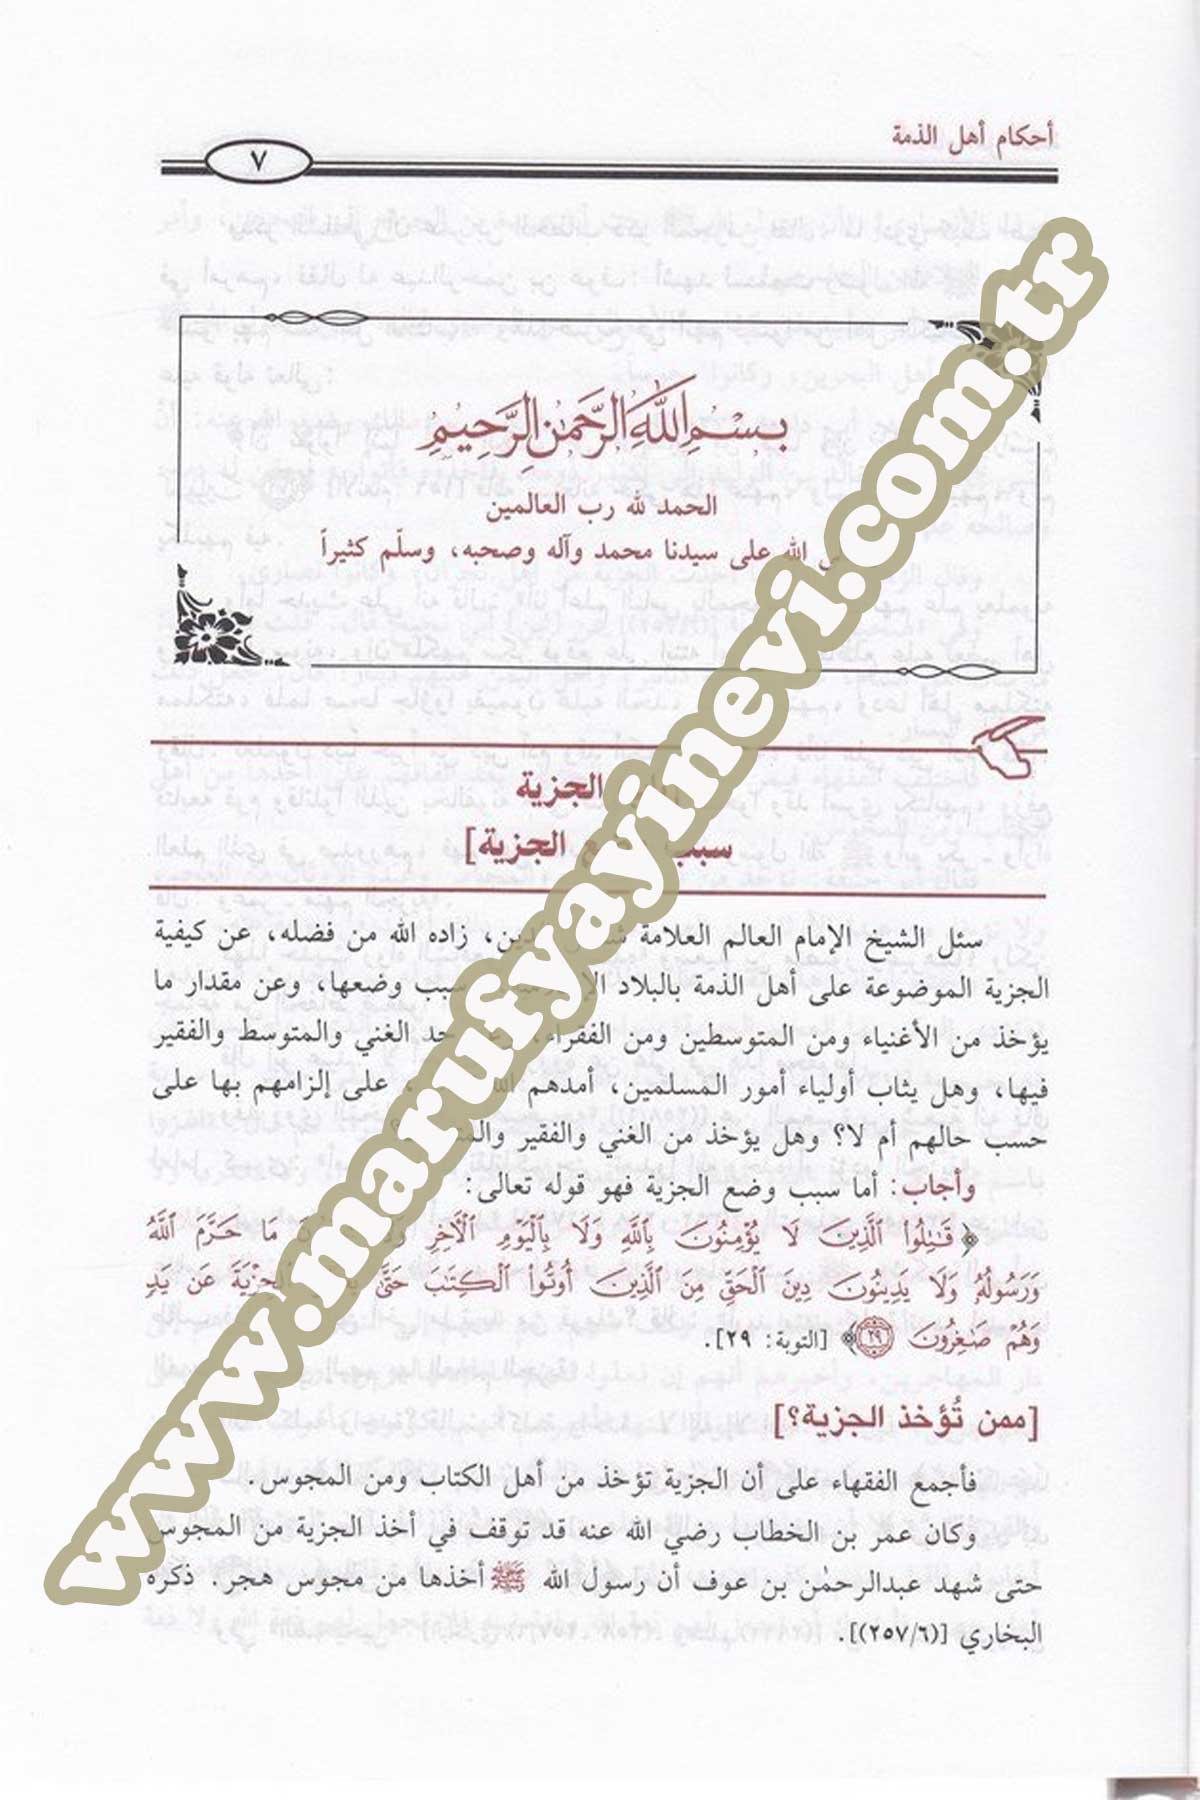 أحكام أهل الذمة
٧
بسم الله الرحمن الرحيم
الحمد لله رب العالمين
الله على سيدنا محمد وآله وصحبه، وسلّم كثيراً
الجزية
سبب الجزية]
سئل الشيخ الإمام العالم العلامة الدين، زاده الله من فضله، عن كيفية
الجزية الموضوعة على أهل الذمة بالبلاد سبب وضعها، وعن مقدار ما
يؤخذ من الأغنياء ومن المتوسطين ومن الفقراء، حد الغني والمتوسط والفقير
فيها، وهل يثاب أولياء أمور المسلمين، أمدهم الله على إلزامهم بها على
حسب حالهم أم لا؟ وهل يؤخذ من الغني والفقير
وأجاب: أما سبب وضع الجزية فهو قوله تعالى:
﴿ قَٰتِلُوا۟ ٱلَّذِينَ لَا يُؤْمِنُونَ بِٱللَّهِ وَلَا بِٱلْيَوْمِ ٱلْأٓخِرِ مَا حَرَّمَ ٱللَّهُ
وَرَسُولُهُۥ وَلَا يَدِينُونَ دِينَ ٱلْحَقِّ مِنَ ٱلَّذِينَ أُوتُوا۟ ٱلْكِتَٰبَ حَتَّىٰ ٱلْجِزْيَةَ عَن يَدٍ
وَهُمْ صَٰغِرُونَ ٢٩﴾ [التوبة: ٢٩].
[ممن تُؤخذ الجزية؟]
فأجمع الفقهاء على أن الجزية تؤخذ من أهل الكتاب ومن المجوس.
وكان عمر بن الخطاب رضي الله عنه قد توقف في أخذ الجزية من المجوس
حتى شهد عبدالرحمٰن بن عوف أن رسول الله ﷺ أخذها من مجوس هجر. ذكره
البخاري [(٢٥٧/٦)].
www.marufyayinevi.com.tr